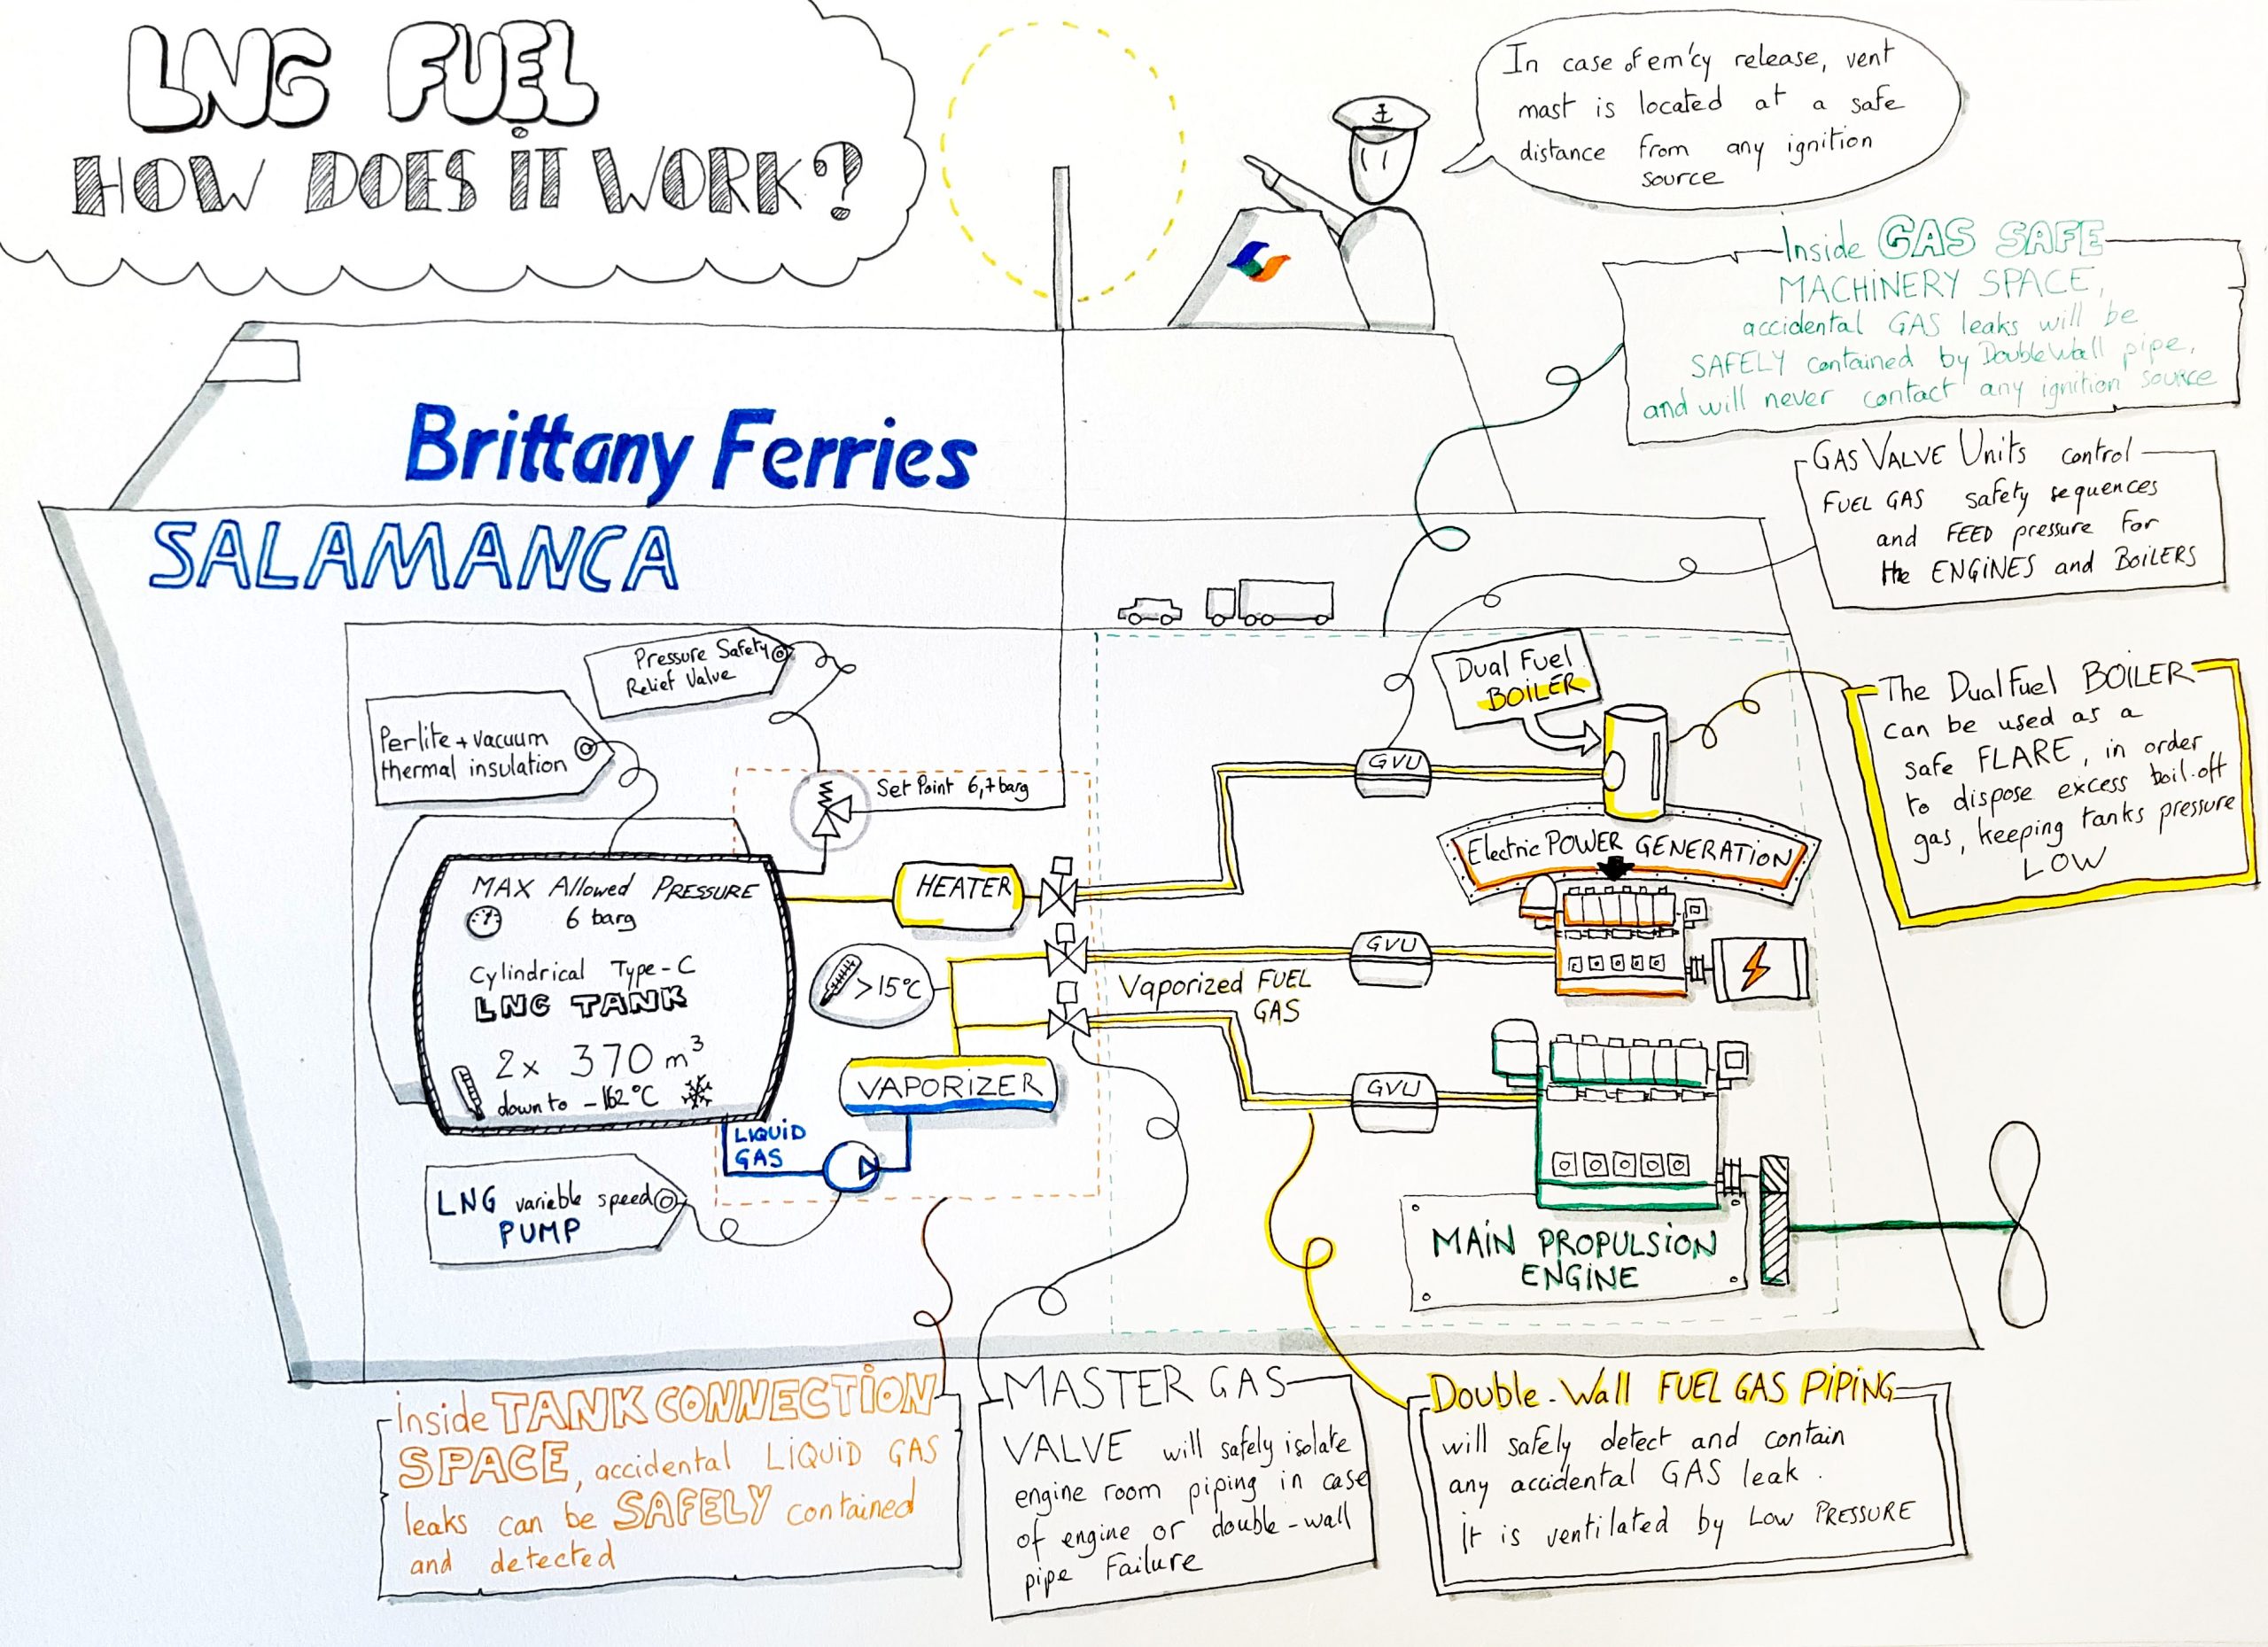 LNG FUEL
HOW DOES IT WORK?
In case of em'cy release, vent
mast is located at a safe
distance from any ignition
source
Inside GAS SAFE
MACHINERY SPACE,
accidental GAS leaks will be
SAFELY contained by Double Wall pipe,
and will never contact any ignition source
Brittany Ferries
SALAMANCA
GAS VALVE Units control
FUEL GAS safety sequences
and FEED pressure for
the ENGINES and BOILERS
Pressure Safety
Relief Valve
Perlite + vacuum
thermal insulation
Set Point 6,7 barg
Dual Fuel
BOILER
The Dual Fuel BOILER
can be used as a
safe FLARE, in order
to dispose excess boil-off
gas, keeping tanks pressure
LOW
GVU
Electric POWER GENERATION
MAX Allowed PRESSURE
6 barg
Cylindrical Type-C
LNG TANK
2x 370 m³
down to -162°C
HEATER
>15°C
GVU
Vaporized FUEL
GAS
VAPORIZER
GVU
LIQUID
GAS
LNG variable speed
PUMP
MAIN PROPULSION
ENGINE
inside TANK CONNECTION
SPACE, accidental LIQUID GAS
leaks can be SAFELY contained
and detected
MASTER GAS
VALVE will safely isolate
engine room piping in case
of engine or double-wall
pipe Failure
Double-Wall FUEL GAS PIPING
will safely detect and contain
any accidental GAS leak.
it is ventilated by LOW PRESSURE